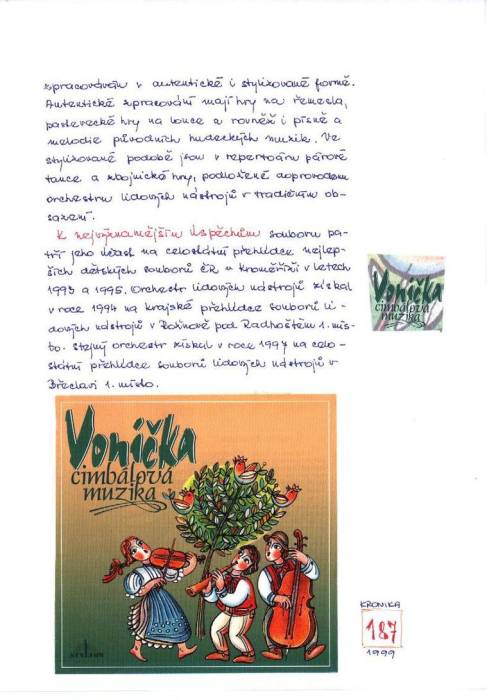 zpracovávám v autentické i stylizované formě.
Autentické zpracování mají hry na řemesla,
pastevecké hry na louce a rovněž i písně a
melodie původních hudeckých muzik. Ve
stylizované podobě jsou v repertoáru párové
tance a zbojnické hry, podložené doprovodem
orchestru lidových nástrojů v tradičním ob-
sazení.
K nejvýznamějším úspěchům souboru pa-
tří jeho účast na celostátní přehlídce nejlep-
ších dětských souborů ČR v Kroměříži v letech
1993 a 1995. Orchestr lidových nástrojů získal
v roce 1994 na krajské přehlídce souborů li-
dových nástrojů v Rožnově pod Radhoštěm 1. mís-
to. Stejný orchestr získal v roce 1997 na celo-
státní přehlídce souborů lidových nástrojů v
Břeclavi 1. místo.
Vonička
cimbálová
muzika
Vonička
cimbálová
muzika
KRONIKA
187
1999